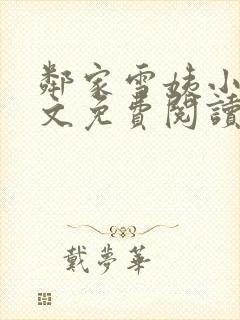 鄰家雪姨小
文免費閱讀
戴夢華